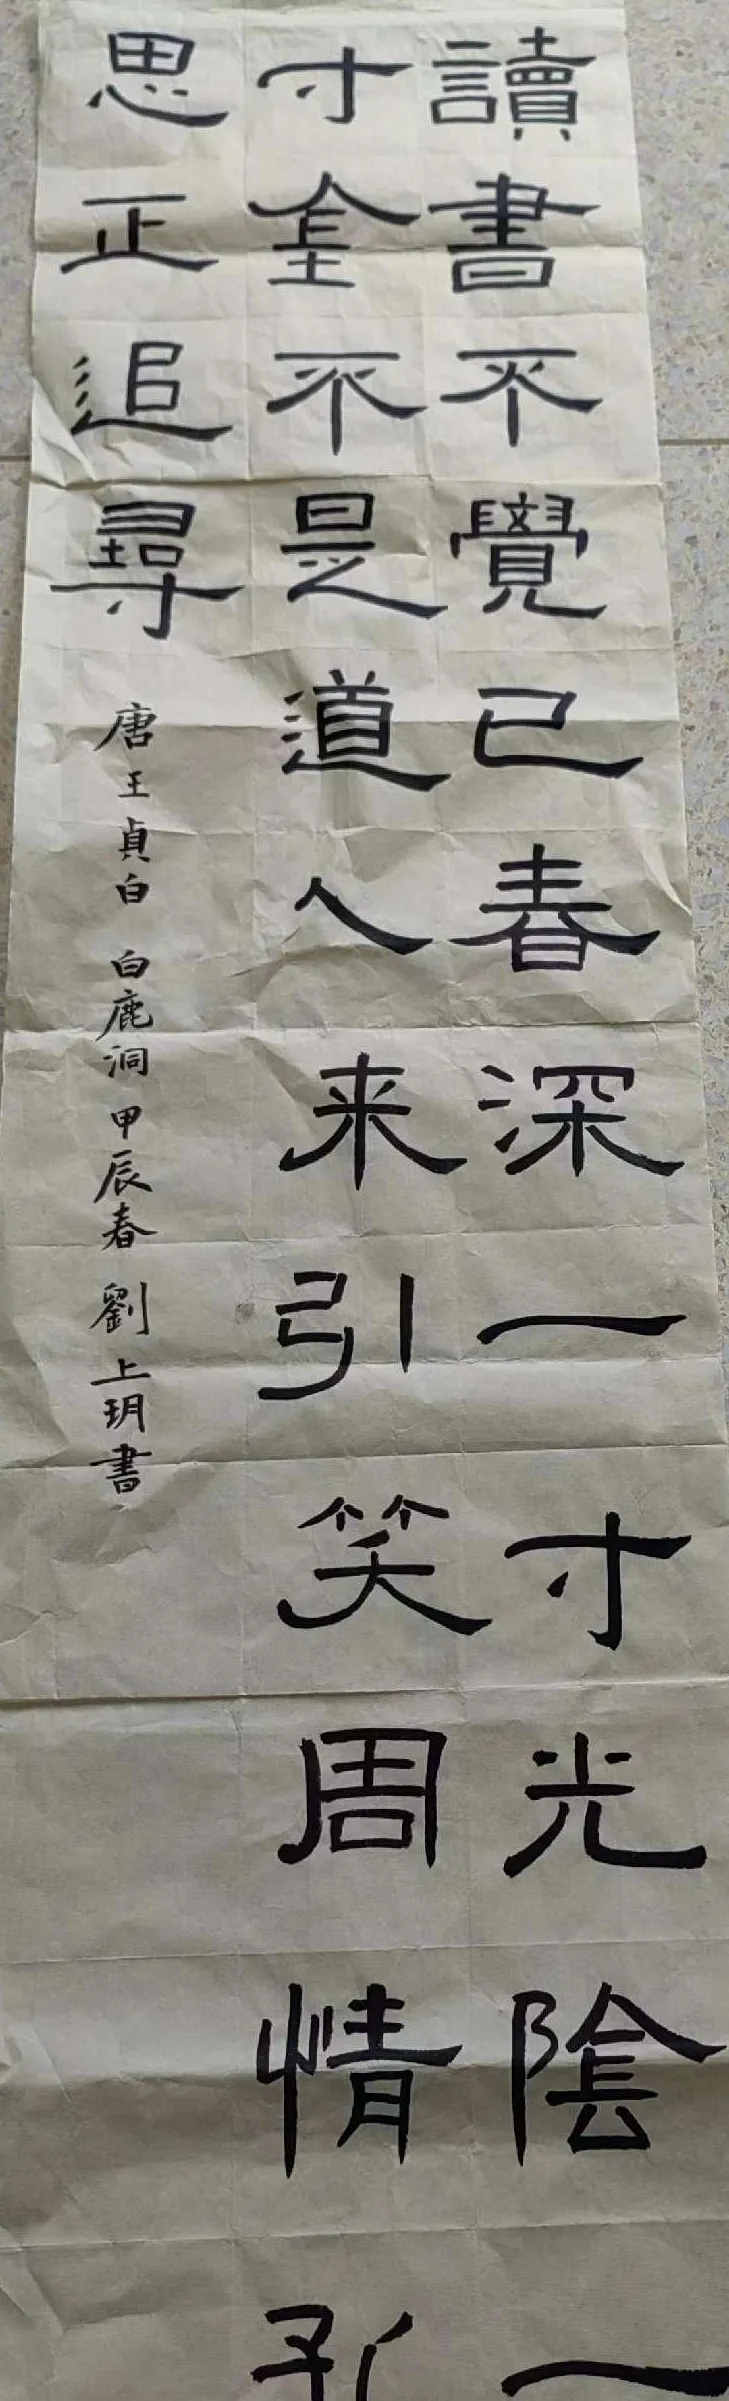 讀書不覺已春深一寸光陰一
寸金不是道人来引笑周情孔
思正追尋
唐王貞白 白鹿洞 甲辰春 劉上玥書